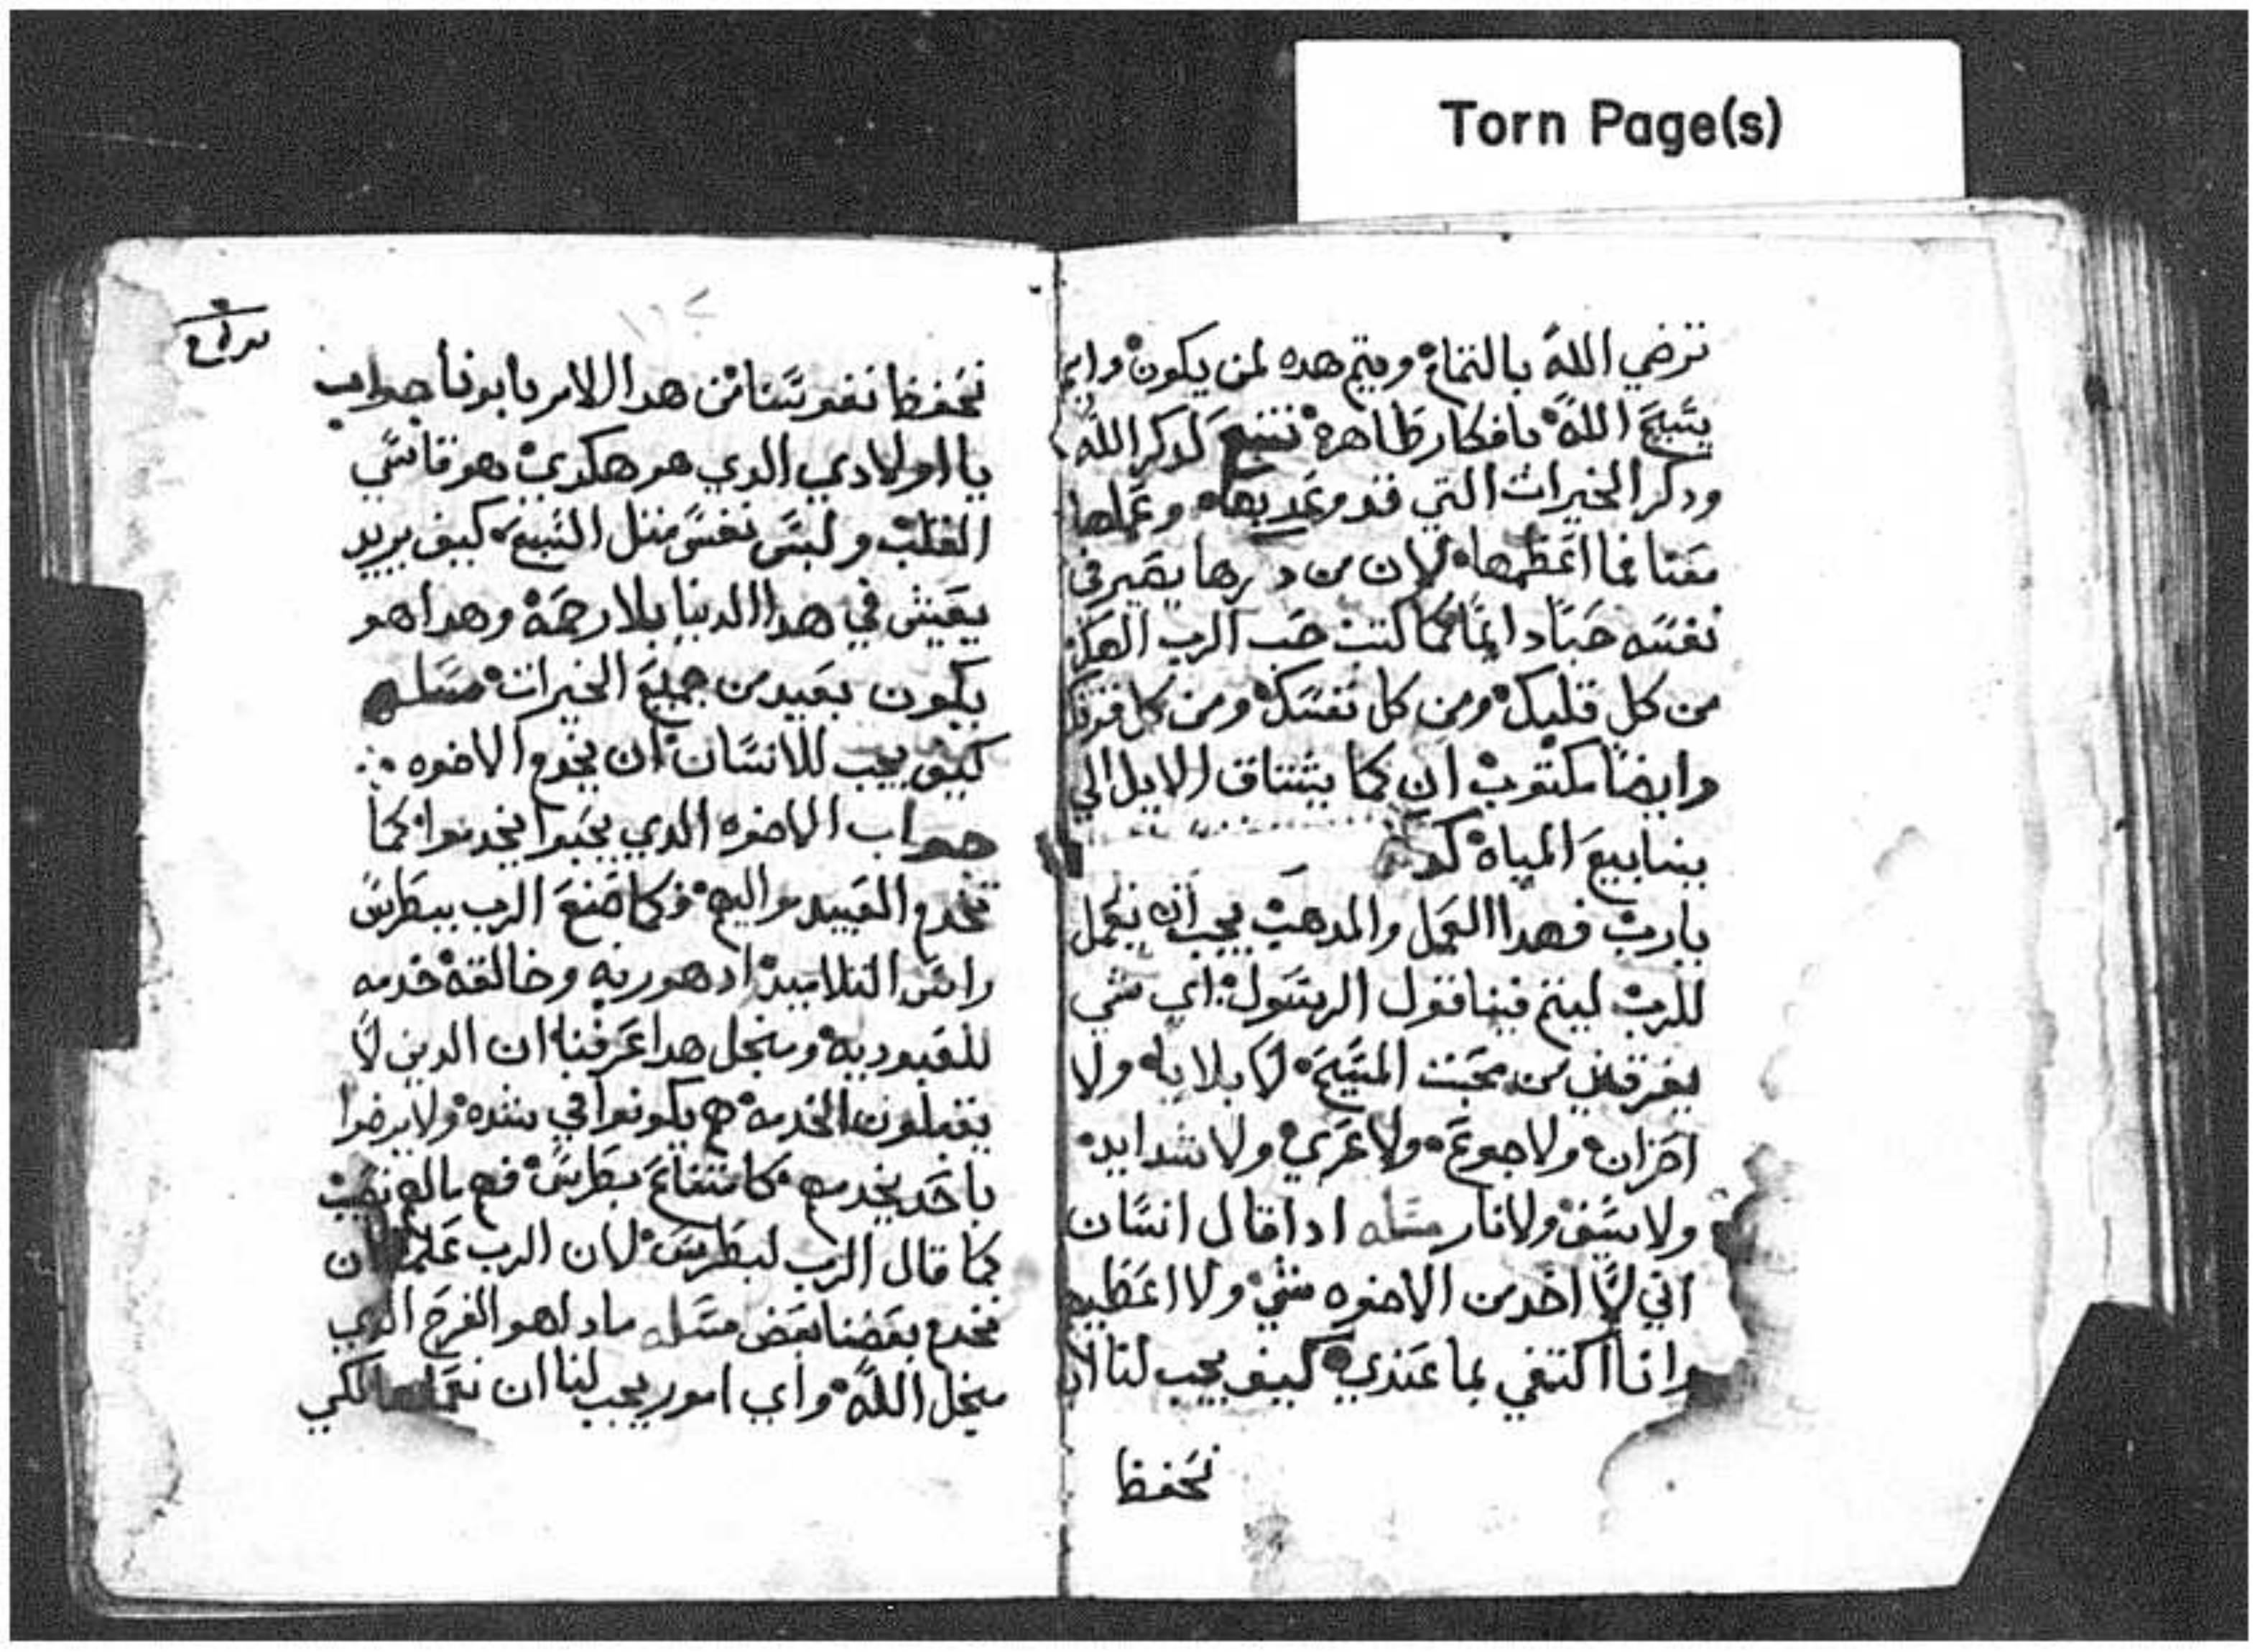 Torn Page(s)
ترضي الله بالتمام ويتم هده لمن يكون
يتبع الله بافكار طاهرة تتبع لدكر الله
ودكر الخيرات التي قد وعد بها وعملها
معنا فما اعظمها لان من يصير في
نفسه حبا دايما كما كتب حب الرب الهك
من كل قلبك ومن كل نفسك ومن كل قوتك
وايضا مكتوب ان كما يشتاق الايل الي
ينابيع المياه
يارب فهدا العمل والمدهب يجب ان يعمل
للرب ليتم فينا قول الرسول اي شي
يفرقني من محبت المسيح لا بلايا ولا
احزان ولا جوع ولا عري ولا شدايد
ولا سيف ولا نار مسله ادا قال انسان
اني لا اخد من الاخوه شي ولا اعطيهم
وانا اكتفي بما عندي كيف يجب لنا ان
نحفظ
نحفظ نفوسنا من هدا الامر يا ابونا جواب
يا اولادي الدي هو هكدي هو قاسي
القلب ولبس نفس متل السبع كيف يريد
يعيش في هدا الدنيا بلا رحمة وهدا هو
يكون بعيد من جميع الخيرات مسله
كيف يجب للانسان ان يخدم الاخوه
جواب الاخوه الدي يحبوا يخدموا كما
تخدم العبيد مواليهم وكما صنع الرب ببطرس
راس التلاميد اد هو ربه وخالقه خدمه
للعبوديه ومنجل هدا عرفنا ان الدين لا
يقبلون الخدمة هم يكونوا في شده ولا يرضوا
باحد يخدمهم كامتناع بطرس فهم نصيب
كما قال الرب لبطرس لان الرب ان
نخدم بعضنا بعض مسله مادا هو الفرح الدي
منجل الله واي امور يجب لنا ان نعملها لكي